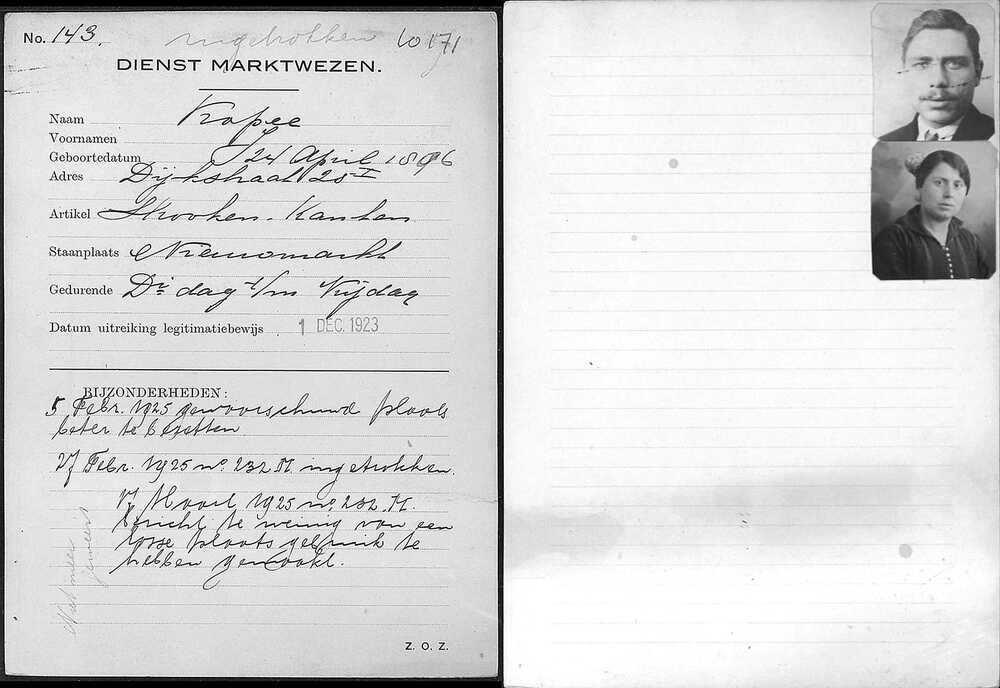 No. 143. ingetrokken 60171
DIENST MARKTWEZEN.
Naam Kopee
Voornamen J
Geboortedatum 24 April 1896
Adres Dijkstraat 25 I
Artikel Strooken. Kanten
Staanplaats Nieuwmarkt
Gedurende Di dag t/m Vrijdag
Datum uitreiking legitimatiebewijs 1 DEC. 1923
BIJZONDERHEDEN:
5 Febr. 1925 gewaarschuwd plaats
beter te bezetten
Febr. 1925 no. 232 M ingetrokken.
Maart 1925 no. 232 M.
bericht te weinig van een
losse plaats gebruik te
hebben gemaakt.
Niet meer
geweest
Z. O. Z.